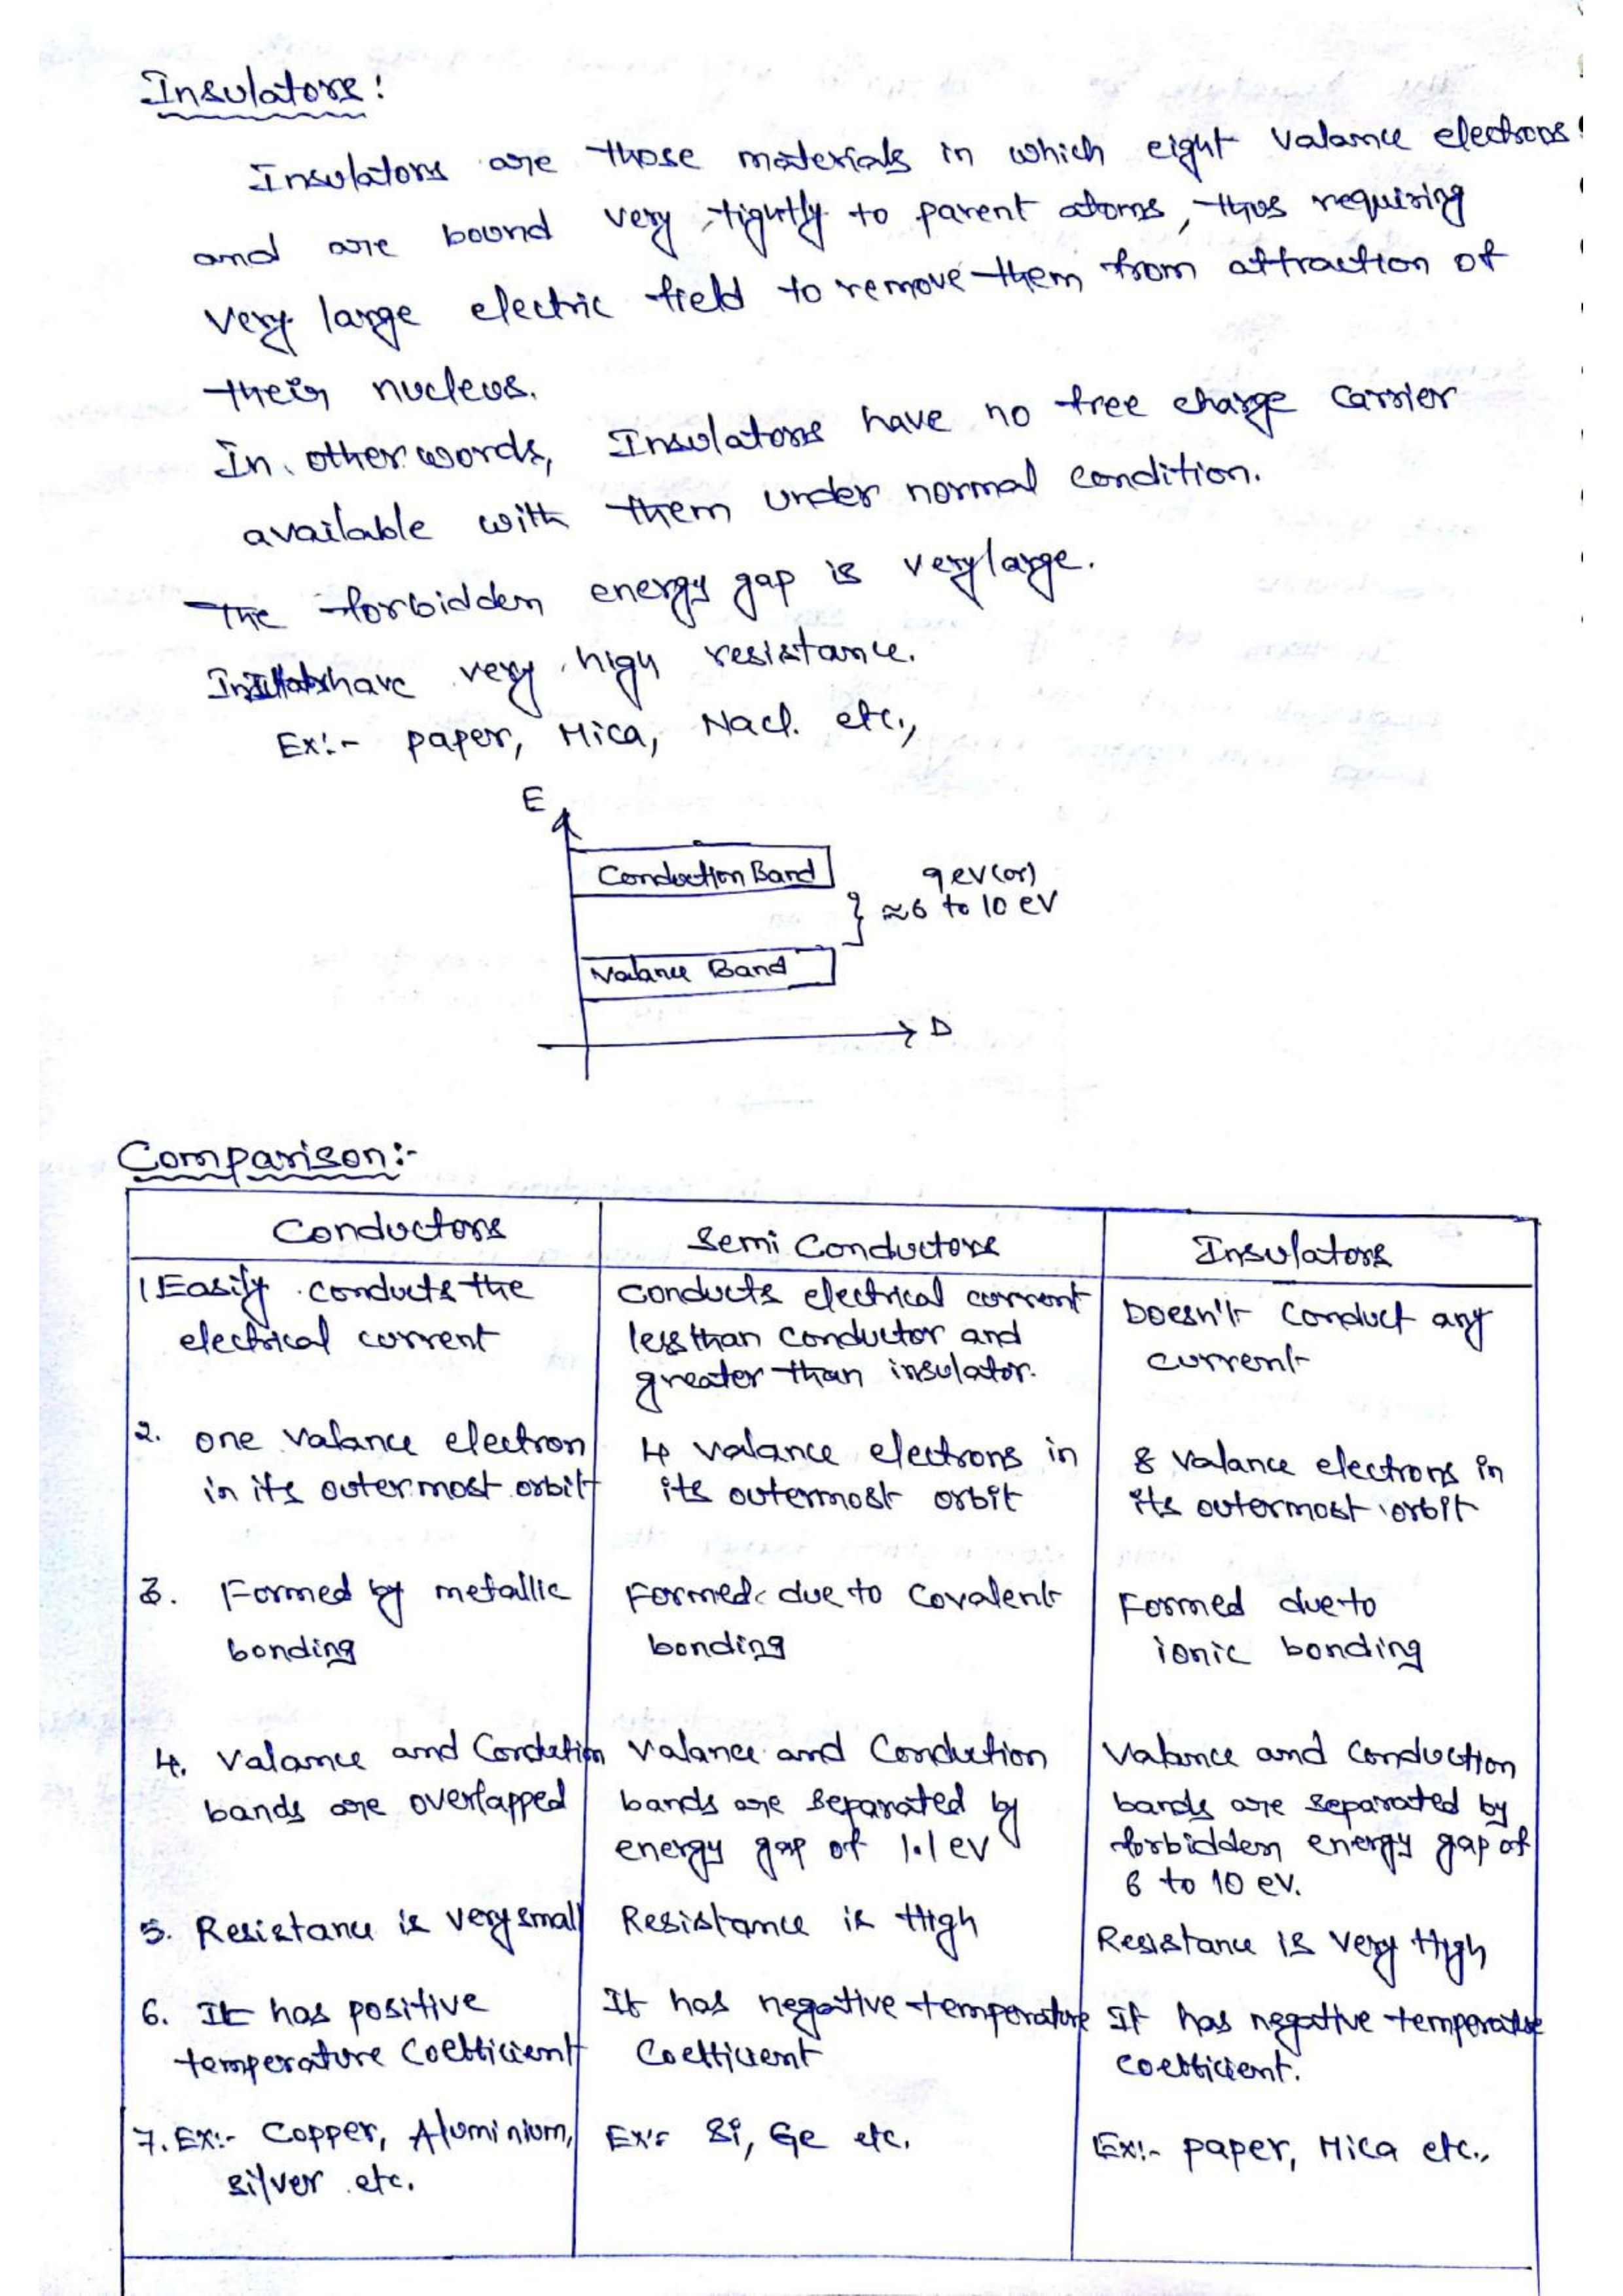 Insulators:
Insulators are those materials in which eight valance electrons
and are bound very tightly to parent atoms, thus requiring
very large electric field to remove them from attraction of
their nucleus.
In other words, Insulators have no free charge carrier
available with them under normal condition.
The forbidden energy gap is very large.
Insulators have very high resistance.
Ex:- paper, Mica, Nacl. etc.,
E
Conduction Band
9 ev (or)
≈6 to 10 eV
Valance Band
D
Comparison:-
Conductors
Semi Conductors
Insulators
1 Easily conducts the
electrical current
conducts electrical current
less than conductor and
greater than insulator.
Doesn't conduct any
current
2. one valance electron
in its outermost orbit
4 valance electrons in
its outermost orbit
8 valance electrons in
its outermost orbit
3. Formed by metallic
bonding
Formed due to Covalent
bonding
Formed due to
ionic bonding
4. Valance and Condution
bands are overlapped
Valance and Condution
bands are separated by
energy gap of 1.1 ev
Valance and conduction
bands are separated by
forbidden energy gap of
6 to 10 eV.
5. Resistance is very small
Resistance is High
Resistance is very High
6. It has positive
temperature Coefficient
It has negative temperature
Coefficient
It has negative temperature
coefficient.
7. Ex:- Copper, Aluminium,
silver etc.
Ex:- Si, Ge etc.
Ex:- paper, Mica etc.,